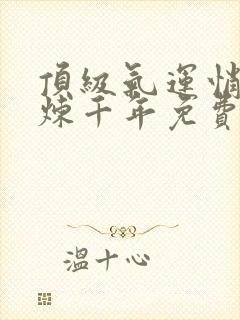 頂級氣運悄
煉千年免費
溫十心